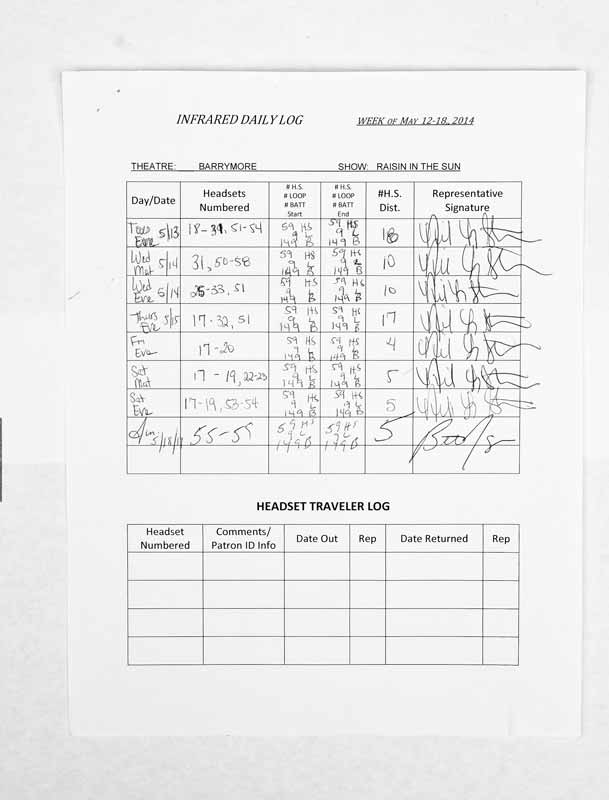 INFRARED DAILY LOG WEEK OF MAY 12-18, 2014
THEATRE: BARRYMORE SHOW: RAISIN IN THE SUN
Day/Date Headsets Numbered # H.S. # LOOP # BATT Start # H.S. # LOOP # BATT End #H.S. Dist. Representative Signature
Tues Eve 5/13 18-31, 51-54 59 HS 9 L 149 B 59 HS 9 L 149 B 18
Wed Mat 5/14 31, 50-58 59 HS 9 L 149 B 59 HS 9 L 149 B 10
Wed Eve 5/14 25-33, 51 59 HS 9 L 149 B 59 HS 9 L 149 B 10
Thurs Eve 5/15 17-32, 51 59 HS 9 L 149 B 59 HS 9 L 149 B 17
Fri Eve 17-20 59 HS 9 L 149 B 59 HS 9 L 149 B 4
Sat Mat 17-19, 22-23 59 HS 9 L 149 B 59 HS 9 L 149 B 5
Sat Eve 17-19, 53-54 59 HS 9 L 149 B 59 HS 9 L 149 B 5
Sun 5/18/14 55-59 59 HS 9 L 149 B 59 HS 9 L 149 B 5
HEADSET TRAVELER LOG
Headset Numbered Comments/ Patron ID Info Date Out Rep Date Returned Rep